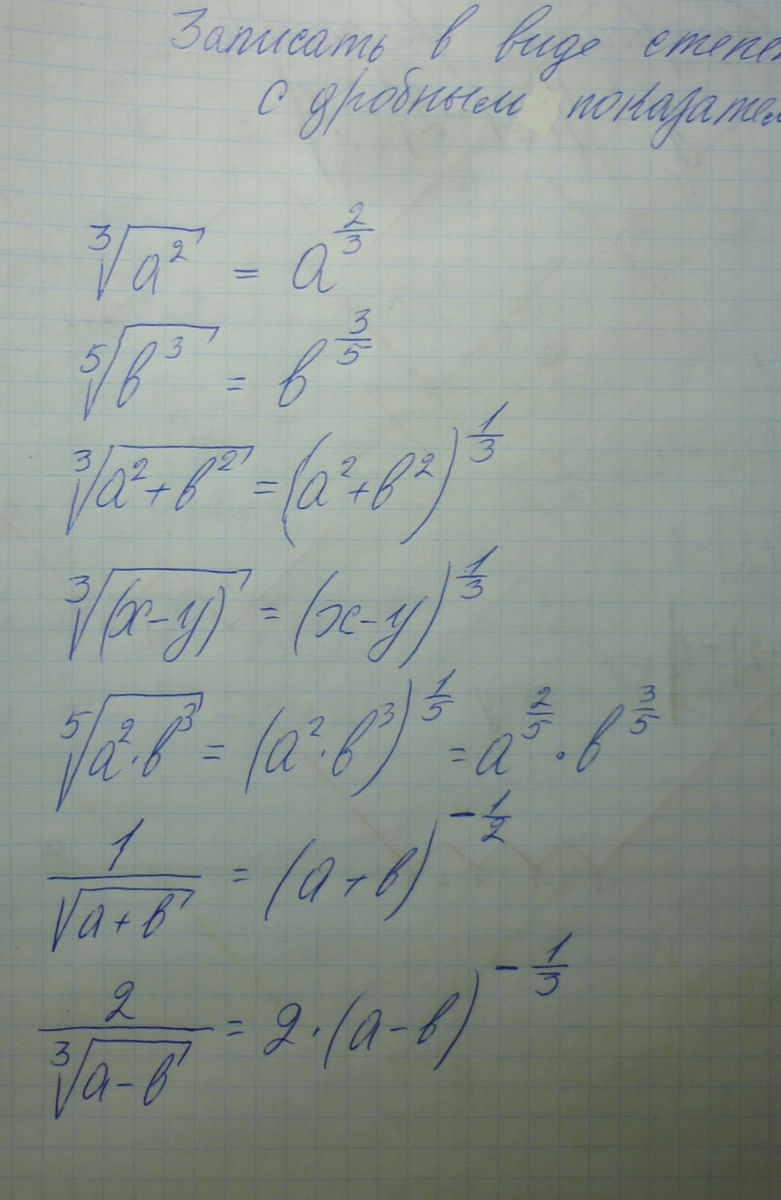 Записать в виде степен
с дробным показател
∛(a²) = a^(2/3)
⁵√(b³) = b^(3/5)
∛(a²+b²) = (a²+b²)^(1/3)
∛((x-y)) = (x-y)^(1/3)
⁵√(a²·b³) = (a²·b³)^(1/5) = a^(2/5)·b^(3/5)
1/√(a+b) = (a+b)^(-1/2)
2/∛(a-b) = 2·(a-b)^(-1/3)